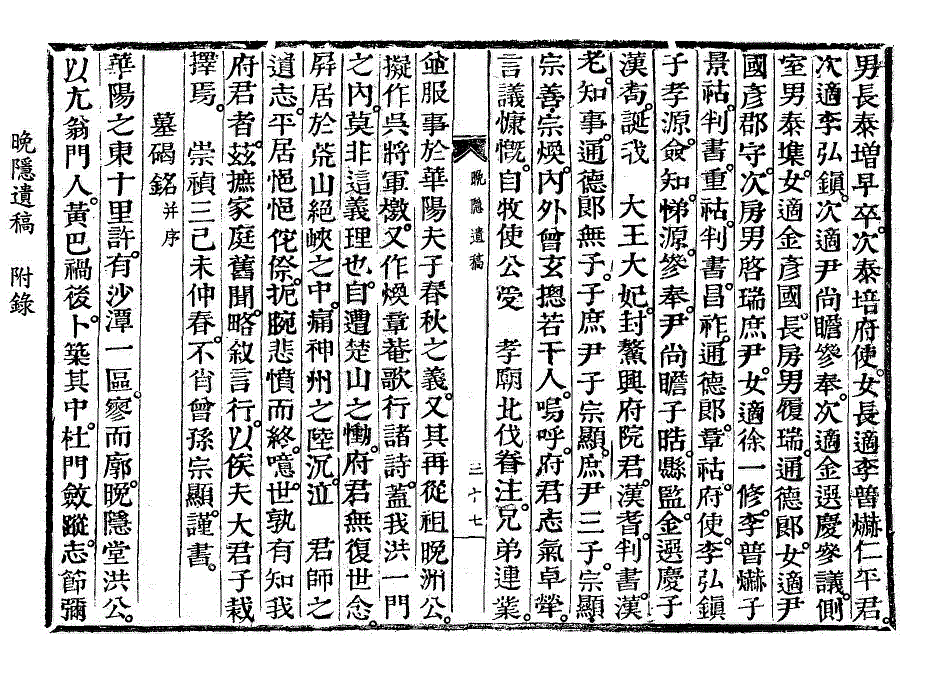 男長泰增早卒。次泰培府使。女長適李普爀仁平君。
次適李弘鎭。次適尹尚瞻參奉。次適金選慶參議。側
室男泰㙫。女適金彥國。長房男履瑞。通德郞。女適尹
國彥郡守。次房男啓瑞庶尹。女適徐一修。李普爀子
景祜。判書。重祜。判書。昌祚。通德郞。章祜。府使。李弘鎭
子孝源僉知。悌源。參奉。尹尚瞻子晧。縣監。金選慶子
漢耇。誕我 大王大妃。封鰲興府院君。漢耆。判書。漢
老。知事。通德郞無子。子庶尹子宗顯。庶尹三子。宗顯
宗善。宗煥。內外曾玄摠若干人。嗚呼。府君志氣卓犖。
言議慷慨。自牧使公受 孝廟北伐眷注。兄弟連業。
晚隱遺稿
二十七
俞服事於華陽夫子春秋之義。又其再從祖晚洲公。
擬作吳將軍檄。又作煥章菴歌行諸詩。蓋我洪一門
之內。莫非這義理也。自遭楚山之慟。府君無復世念。
屛居於荒山絕峽之中。痛神州之陸沉。泣 君師之
遺志。平居悒悒侘傺。扼腕悲憤而終。噫。世孰有知我
府君者。茲摭家庭舊聞。略敘言行。以俟夫大君子裁
擇焉。 崇禎三己未仲春。不肖曾孫宗顯謹書。
墓碣銘幷序
華陽之東十里許。有沙潭一區。寥而廓。晚隱堂洪公。
以尢翁門人。黃巴禍後。卜築其中。杜門斂蹤。志節彌
晚隱遺稿 附錄